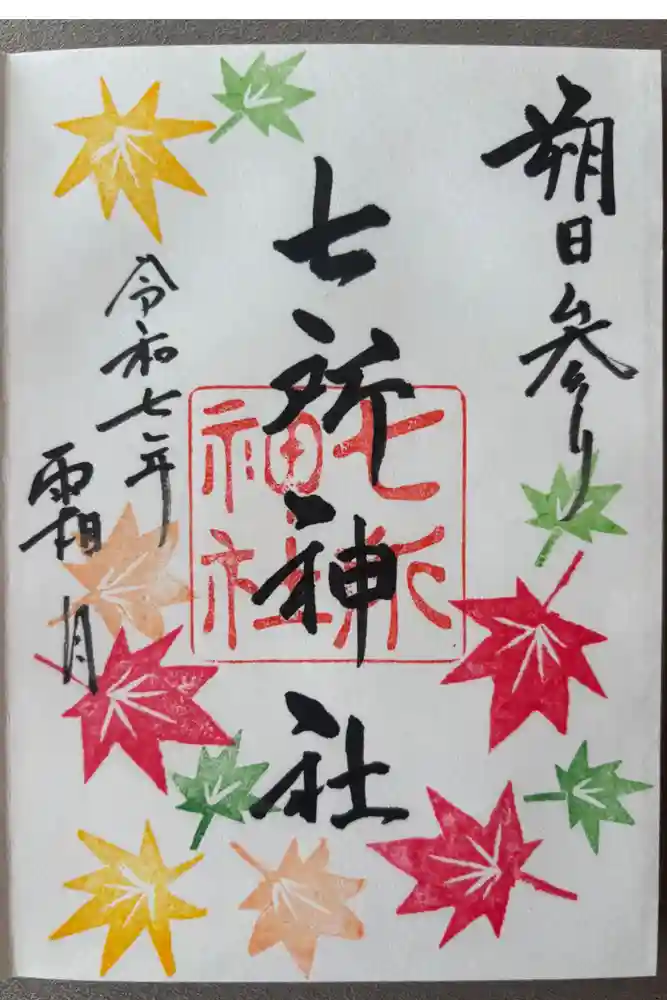 朔日参り
七所神社
七所
神社
令和七年
霜月